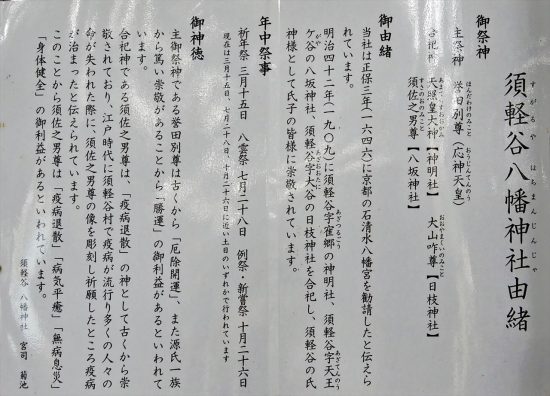 須軽谷八幡神社由緒
すがるや はちまんじんじゃ
御祭神
主祭神 誉田別尊（応神天皇）
ほんだわけのみこと おうじんてんのう
合祀神 天照皇大神【神明社】 大山咋尊【日枝神社】
おおやまくいのみこと
須佐之男尊【八坂神社】
すさのおのみこと
御由緒
当社は正保三年（一六四六）に京都の石清水八幡宮を勧請したと伝えら
れています。
明治四十二年（一九〇九）に須軽谷字隺郷の神明社、須軽谷字天王
あざつるごう あざてんのう
ケ谷の八坂神社、須軽谷字大谷の日枝神社を合祀し、須軽谷の氏
がや あざおおたに
神様として氏子の皆様に崇敬されています。
年中祭事
祈年祭 三月十五日 八雲祭 七月二十八日 例祭・新嘗祭 十月二十六日
現在は三月十五日、七月二十八日、十月二十六日に近い土日のいずれかで行われています
御神徳
主御祭神である誉田別尊は古くから「厄除開運」、また源氏一族
から篤い崇敬があることから「勝運」の御利益があるといわれて
います。
合祀神である須佐之男尊は、「疫病退散」の神として古くから崇
敬されており、江戸時代に須軽谷村で疫病が流行り多くの人々の
命が失われた際に、須佐之男尊の像を彫刻し祈願したところ疫病
が治まったと伝えられています。
このことから須佐之男尊は「疫病退散」「病気平癒」「無病息災」
「身体健全」の御利益があるといわれています。
須軽谷 八幡神社 宮司 菊池